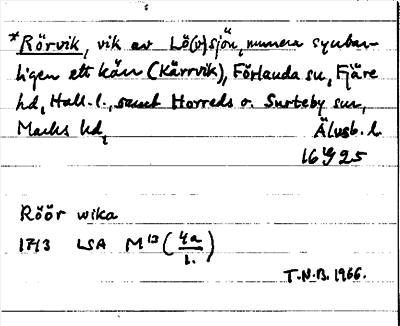 *Rörvik, vik av Lö(v)sjön, numera synbar-
ligen ett kärr (Kärrvik), Förlanda sn, Fjäre
hd, Hall. l., samt Horreds o. Surteby snr,
Marks hd, Älvsb. l.
16 25
Röör wika
1713 LSA M 13 (4a/1.)
T.N.B. 1966.